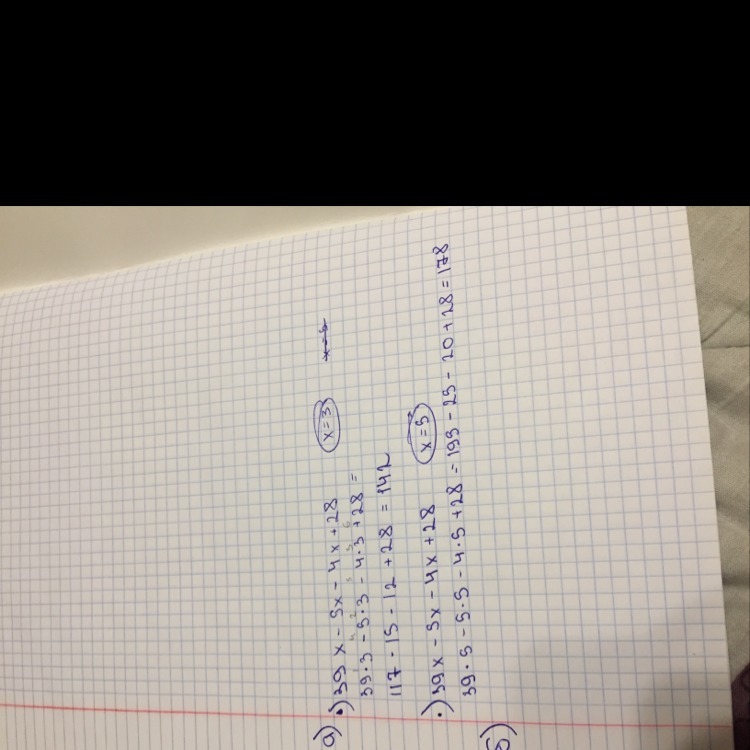 а) •) 39x - 5x - 4x + 28 x=3 x=5
39·3 - 5·3 - 4·3 + 28 =
117 - 15 - 12 + 28 = 142
•) 39x - 5x - 4x + 28 x=5
39·5 - 5·5 - 4·5 + 28 = 193 - 25 - 20 + 28 = 178
б)